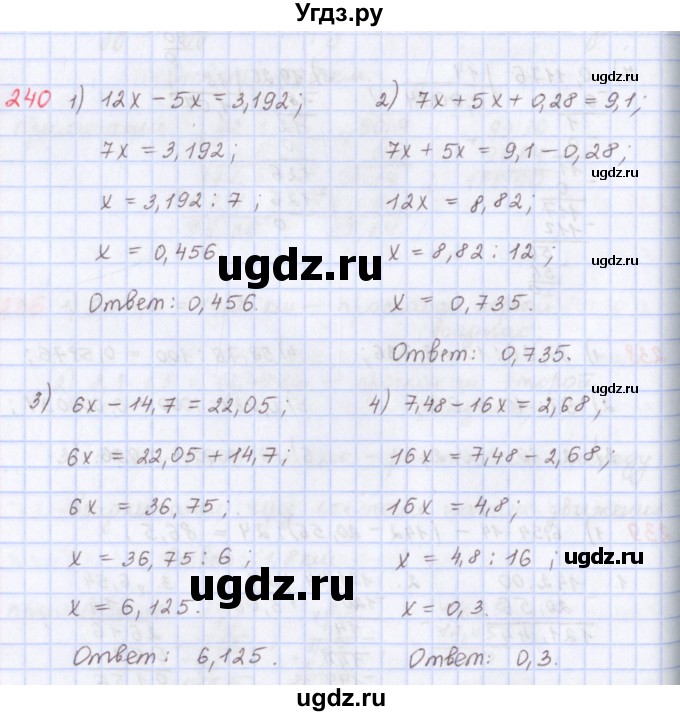 Угдз.ру
ugdz.ru
240 1) 12x - 5x = 3,192;
7x = 3,192;
x = 3,192 : 7;
x = 0,456
Ответ: 0,456.
2) 7x + 5x + 0,28 = 9,1;
7x + 5x = 9,1 - 0,28;
12x = 8,82;
x = 8,82 : 12;
x = 0,735.
Ответ: 0,735.
ugdz.ru
ugdz.ru
ugdz.ru
3) 6x - 14,7 = 22,05;
6x = 22,05 + 14,7;
6x = 36,75;
x = 36,75 : 6;
x = 6,125.
Ответ: 6,125.
4) 7,48 - 16x = 2,68;
16x = 7,48 - 2,68;
16x = 4,8;
x = 4,8 : 16;
x = 0,3.
Ответ: 0,3.
ugdz.ru
ugdz.ru
ugdz.ru
ugdz.ru
ugdz.ru